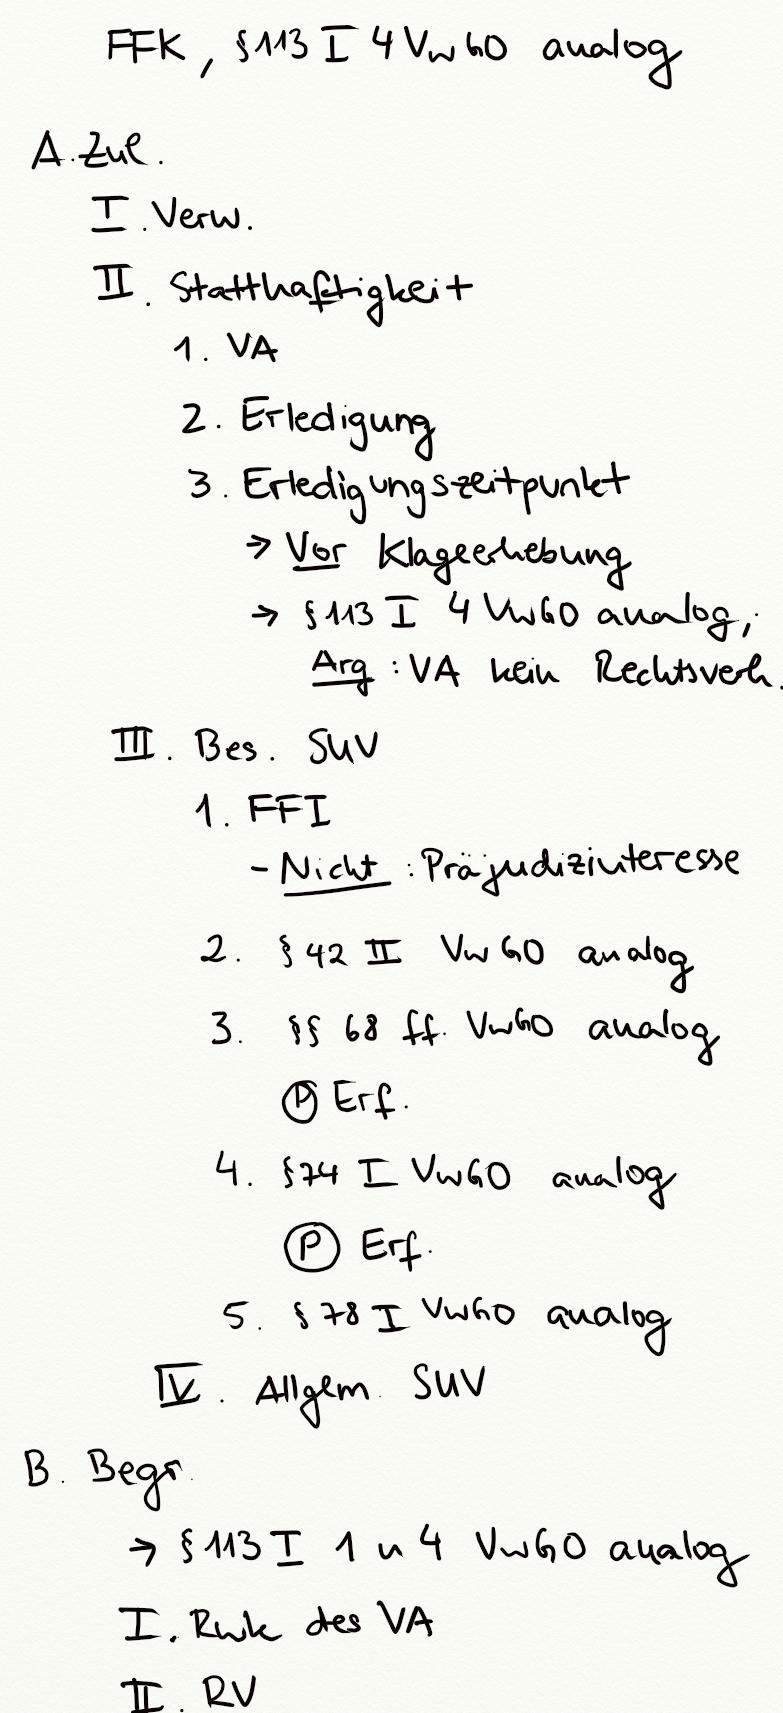 FFK, § 113 I 4 VwGO analog
A. Zul.
I. Verw.
II. Statthaftigkeit
1. VA
2. Erledigung
3. Erledigungszeitpunkt
→ Vor Klageerhebung
→ § 113 I 4 VwGO analog,
Arg : VA kein Rechtsverh.
III. Bes. SUV
1. FFI
- Nicht : Präjudizinteresse
2. § 42 II VwGO analog
3. §§ 68 ff. VwGO analog
Ⓟ Erf.
4. § 74 I VwGO analog
Ⓟ Erf.
5. § 78 I VwGO analog
IV. Allgem. SUV
B. Begr.
→ § 113 I 1 u 4 VwGO analog
I. Rwk des VA
II. RV